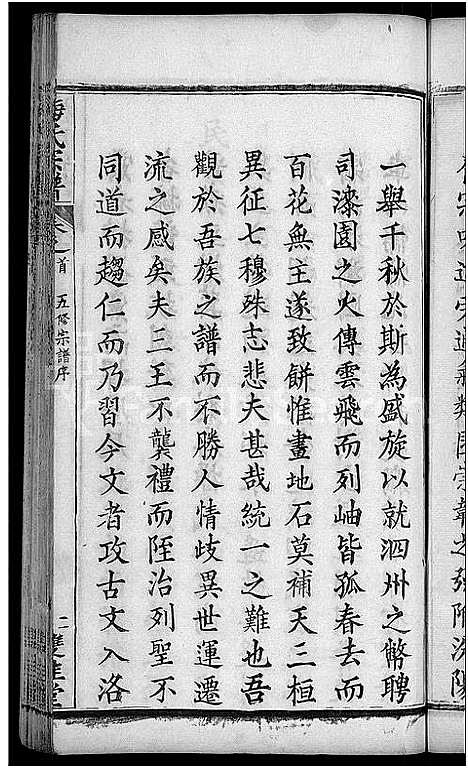 一舉千秋於斯為盛旋以就泗州之幣聘
司漆園之火傳雲飛而列岫皆孤春去而
百花無主遂致餅惟畫地石莫補天三桓
異征七穆殊志悲夫甚哉統一之難也吾
觀於吾族之譜而不勝人情歧異世運遷
流之感矣夫三王不襲禮而臻治列聖不
同道而趨仁而乃習今文者攻古文入洛
梅氏宗譜
卷之首 五修宗譜序
二